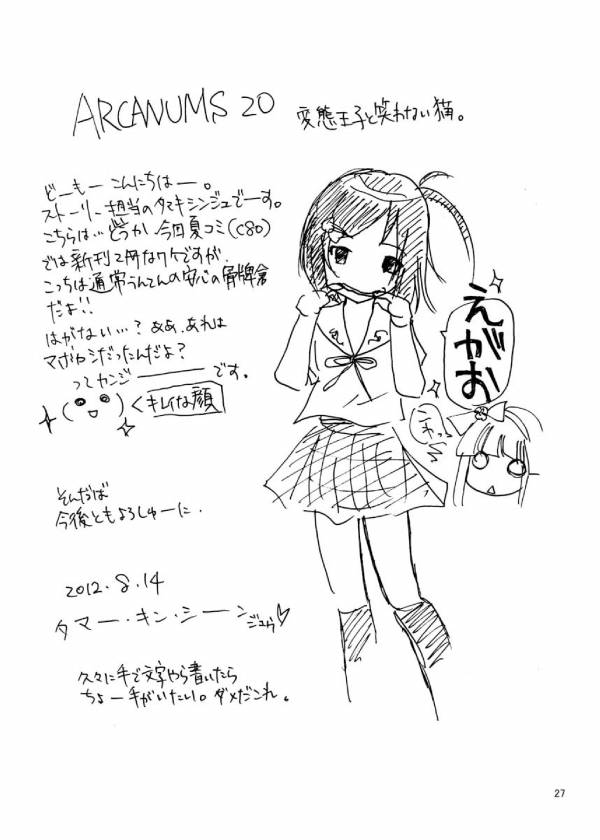 ARCANUMS 20
変態王子と笑わない猫。
どーもー こんにちはー。
ストーリー担当のタマキシンジュでーす。
こちらは… どうか、今回夏コミ(C80)
では新刊2冊なワケですが、
こっちは通常うんてんの安心の骨牌倉
だよ!!
はがない…? ああ、あれは
マボロシだったんだよ?
ってカンジ―――です。
キレイな顔
えがお
こわっ
そんだば
今後ともよろしゅーに.
2012.8.14
タマー・キン・シーンジュゥ♡
久々に手で文字やら書いたら
ちょー手がいたい。ダメだこれ。
27